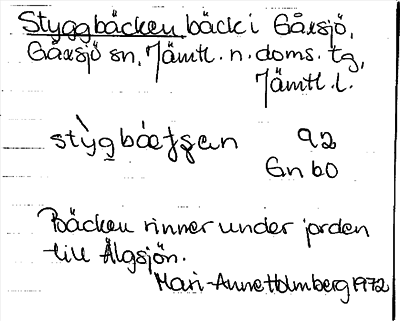 Styggbäcken, bäck i Gåxsjö,
Gåxsjö sn, Jämtl. n. doms. tg,
Jämtl. l.
92
Gn b0
Bäcken rinner under jorden
till Älgsjön.
Mari-Anne Holmberg 1972